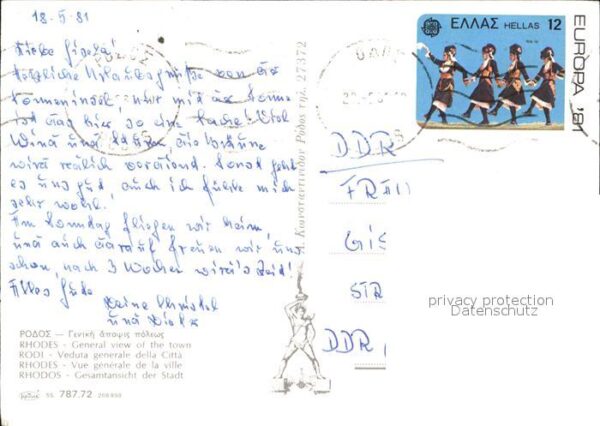 18.5.81
Liebe Gisela!
Herzliche Urlaubsgrüße von der
Sonneninsel, nur mit der Sonne
ist das hier so eine Sache. Viel
Wind und
wird reichlich Sonst geht
es uns gut, auch ich fühle mich
sehr wohl.
Am Sonntag fliegen wir heim,
und auch darauf freuen wir uns
schon, nach 3 Wochen wird's Zeit!
Alles Gute
Deine Christel
und
ΡΟΔΟΣ — Γενική ἄποψις πόλεως
RHODES - General view of the town
RODI - Veduta generale della Città
RHODES - Vue générale de la ville
RHODOS - Gesamtansicht der Stadt
SS. 787.72
Α. Κωνσταντινίδου Ρόδος τηλ. 27372
ΕΛΛΑΣ HELLAS 12
EUROPA '81
DDR
FRAU
GIS
STR
DDR
privacy protection
Datenschutz